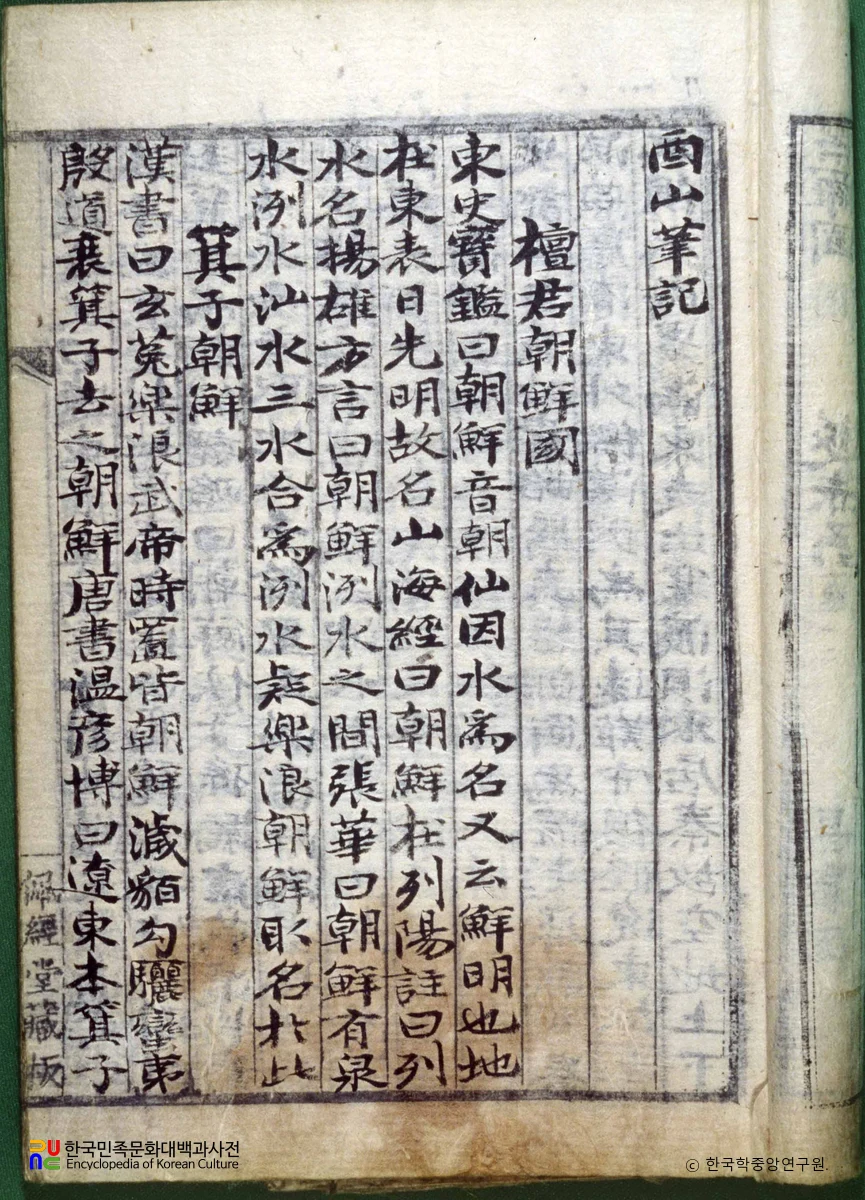 酉山筆記
檀君朝鮮國
東史寶鑑曰朝鮮音朝仙因水爲名又云鮮明也地
在東表日先明故名山海經曰朝鮮在列陽註曰列
水名揚雄方言曰朝鮮洌水之間張華曰朝鮮有泉
水洌水汕水三水合爲洌水疑樂浪朝鮮取名於此
箕子朝鮮
漢書曰玄菟樂浪武帝時置皆朝鮮濊貊勾驪蠻夷
殷道衰箕子去之朝鮮唐書温彦博曰遼東本箕子
佩經堂藏版
한국민족문화대백과사전
Encyclopedia of Korean Culture
ⓒ 한국학중앙연구원.